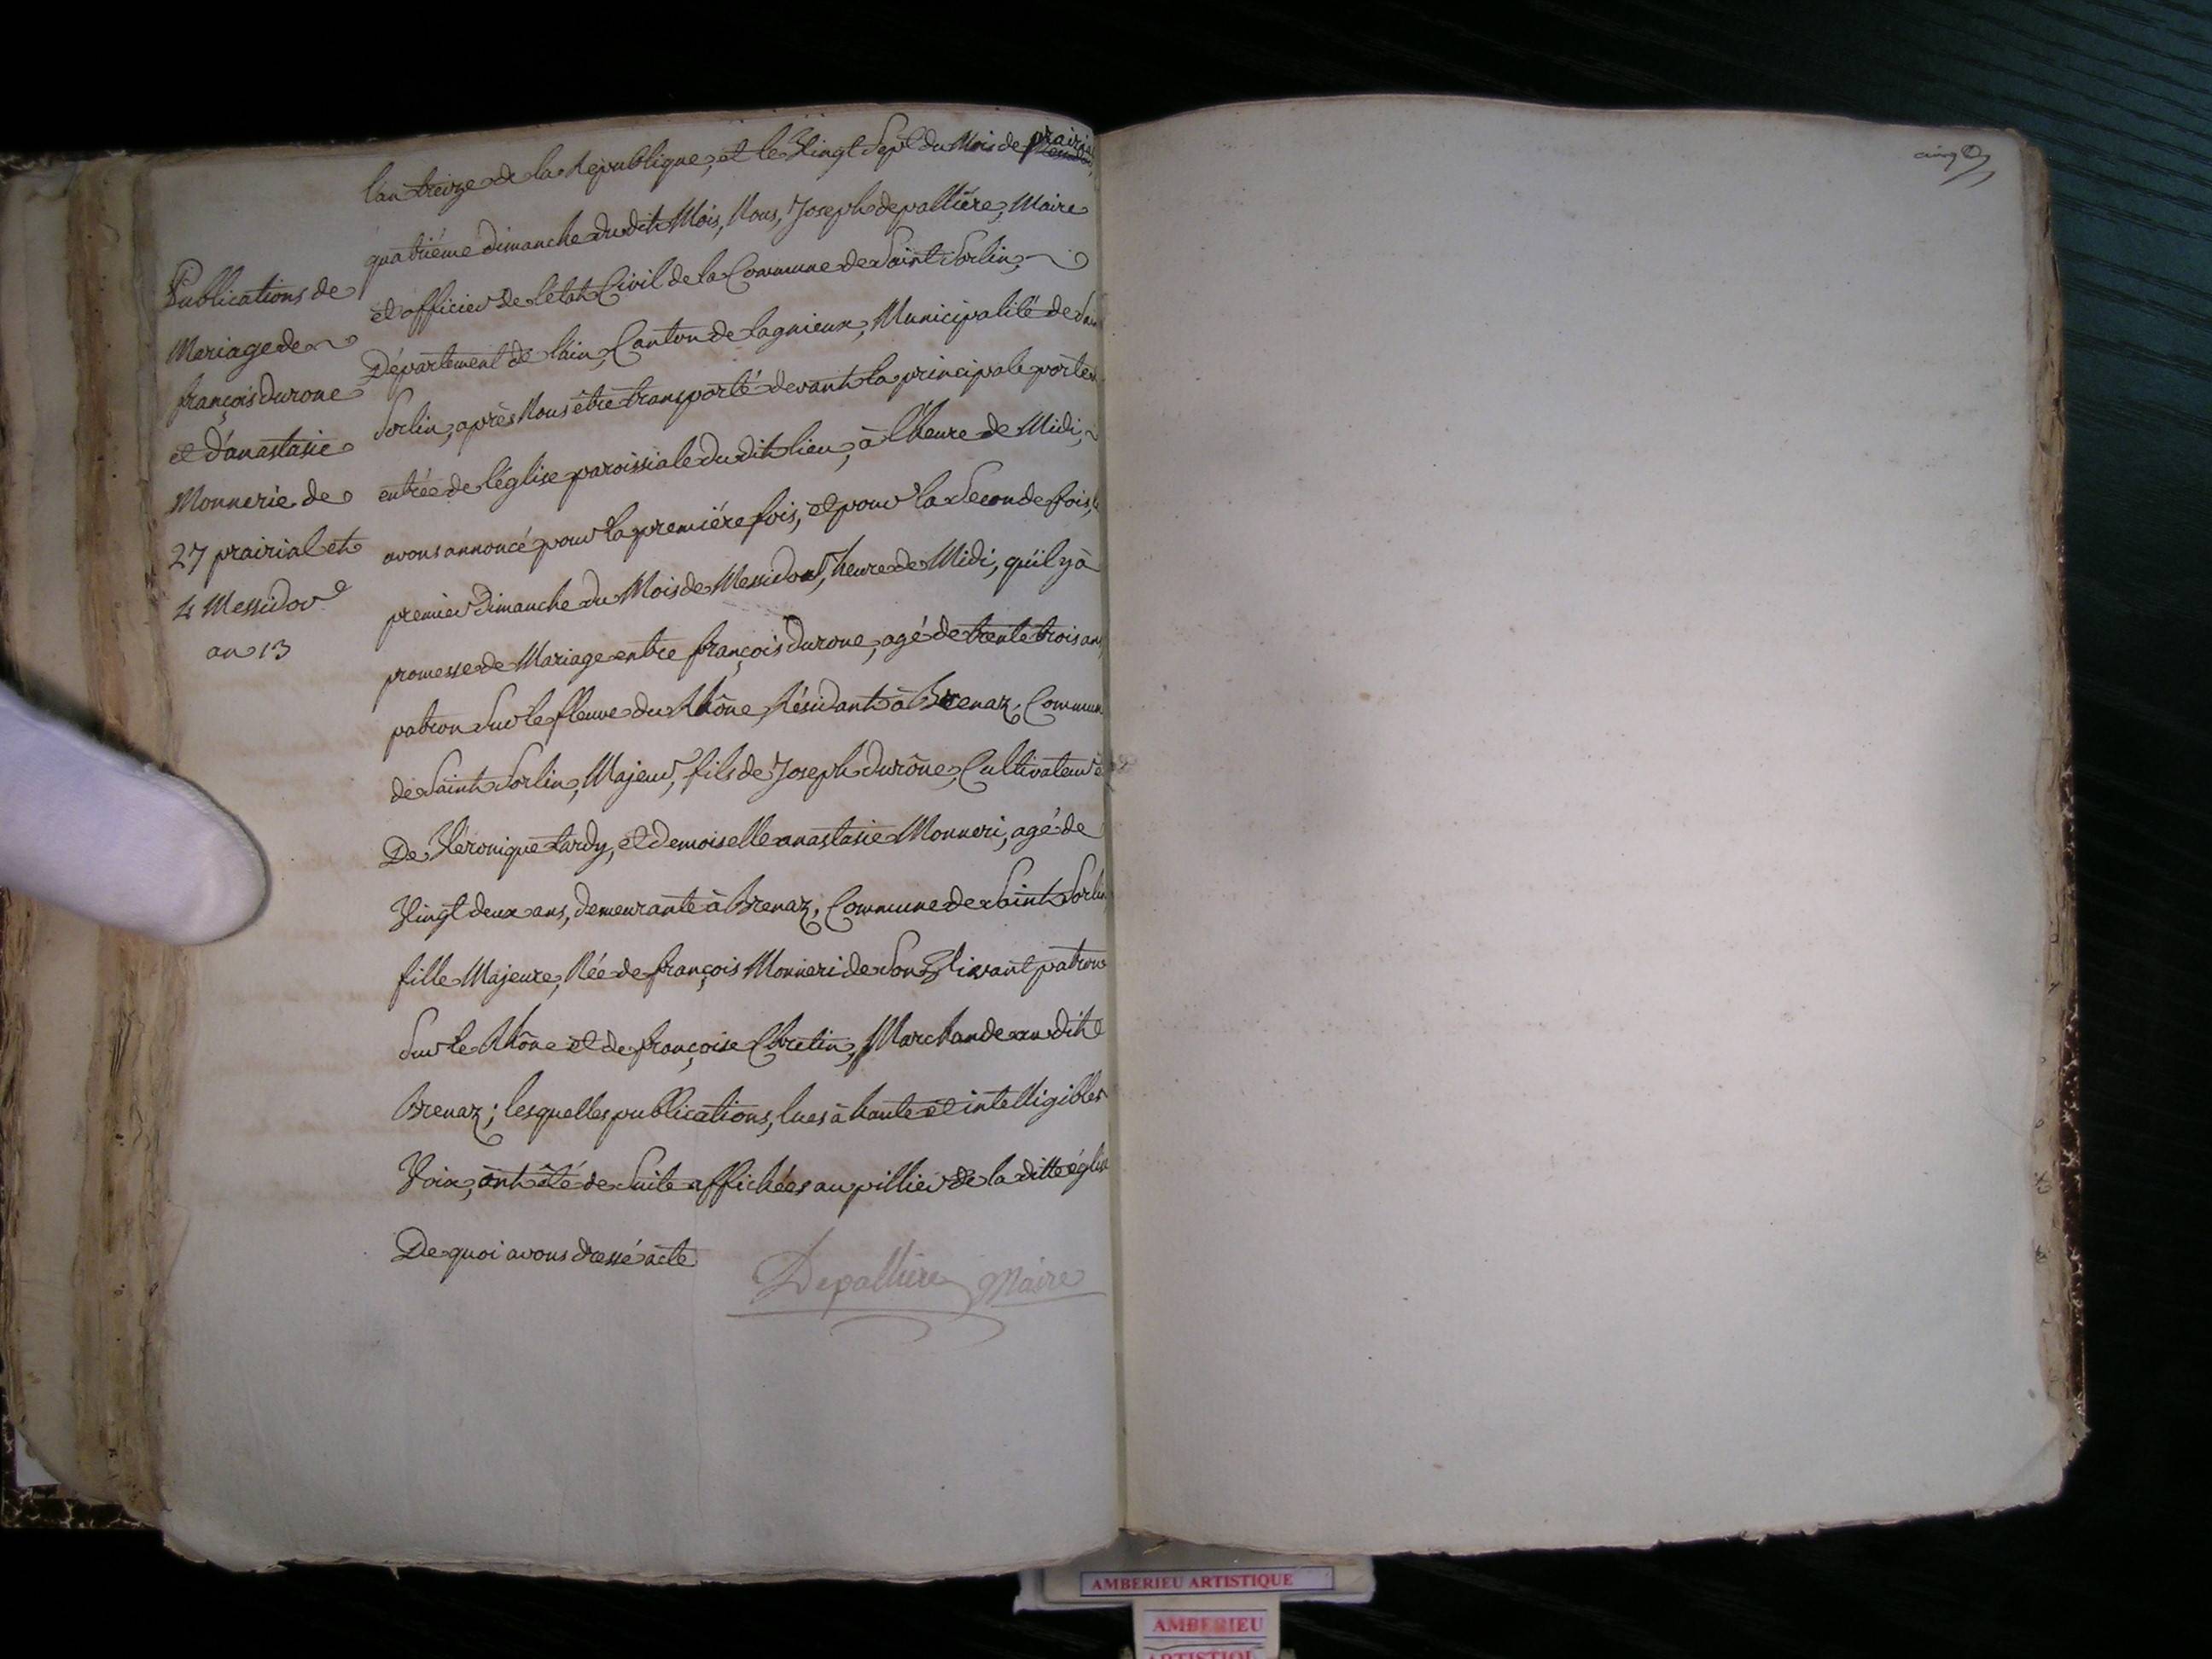 Publications de
Mariage de
françois durone
et d'anastasie
Monnerie de
27 prairial et
4 Messidor
an 13
l'an treize de la République, et le Vingt Sept du Mois de prairial
quatriéme dimanche du dit Mois, Nous, Joseph depallière, Maire
et officier de l'etat Civil de la Commune de Saint Sorlin,
Département de l'ain, Canton de Lagnieux, Municipalité de
Sorlin, après Nous être transporté devant la principale porte
entrée de l'église paroissiale du dit lieu, à l'heure de Midi,
avons annoncé pour la premiére fois, et pour la Seconde fois,
premier dimanche du Mois de Messidor, heure de Midi, qu'il y à
promesse de Mariage entre françois durone, agé de trente trois ans
patron Sur le fleuve du Rhône Résidant à Brenaz, Commune
de Saint Sorlin, Majeur, fils de Joseph durône, Cultivateur
De Véronique tardy, et demoiselle anastasie Monneri, agé de
Vingt deux ans, demeurante à Brenaz, Commune de Saint Sorlin
fille Majeure, Née de françois Monneri de Son Vivant patron
Sur le Rhône et de françoise Chretin, Marchande au dit
Brenaz; lesquelles publications, lues à haute et intelligible
Voix, ont été de Suite affichées au pillier de la ditte église
De quoi avons dressé acte
Depallière Maire
AMBERIEU ARTISTIQUE
AMBERIEU
ARTISTIQUE